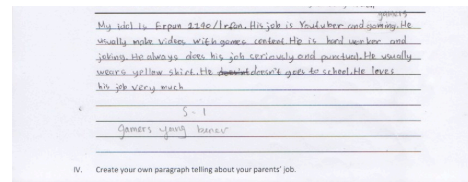 gamers
My idol is Erpan 1140/Irfan. His job is Youtuber and gaming. He
usually make vidses with games content. He is hard worker and
joking. He always does his job seriously and punctual. He usually
wears yellow shirt. He doesn't doesn't goes to school. He loves
his job very much
S - 1
gamers yang benar
IV. Create your own paragraph telling about your parents' job.